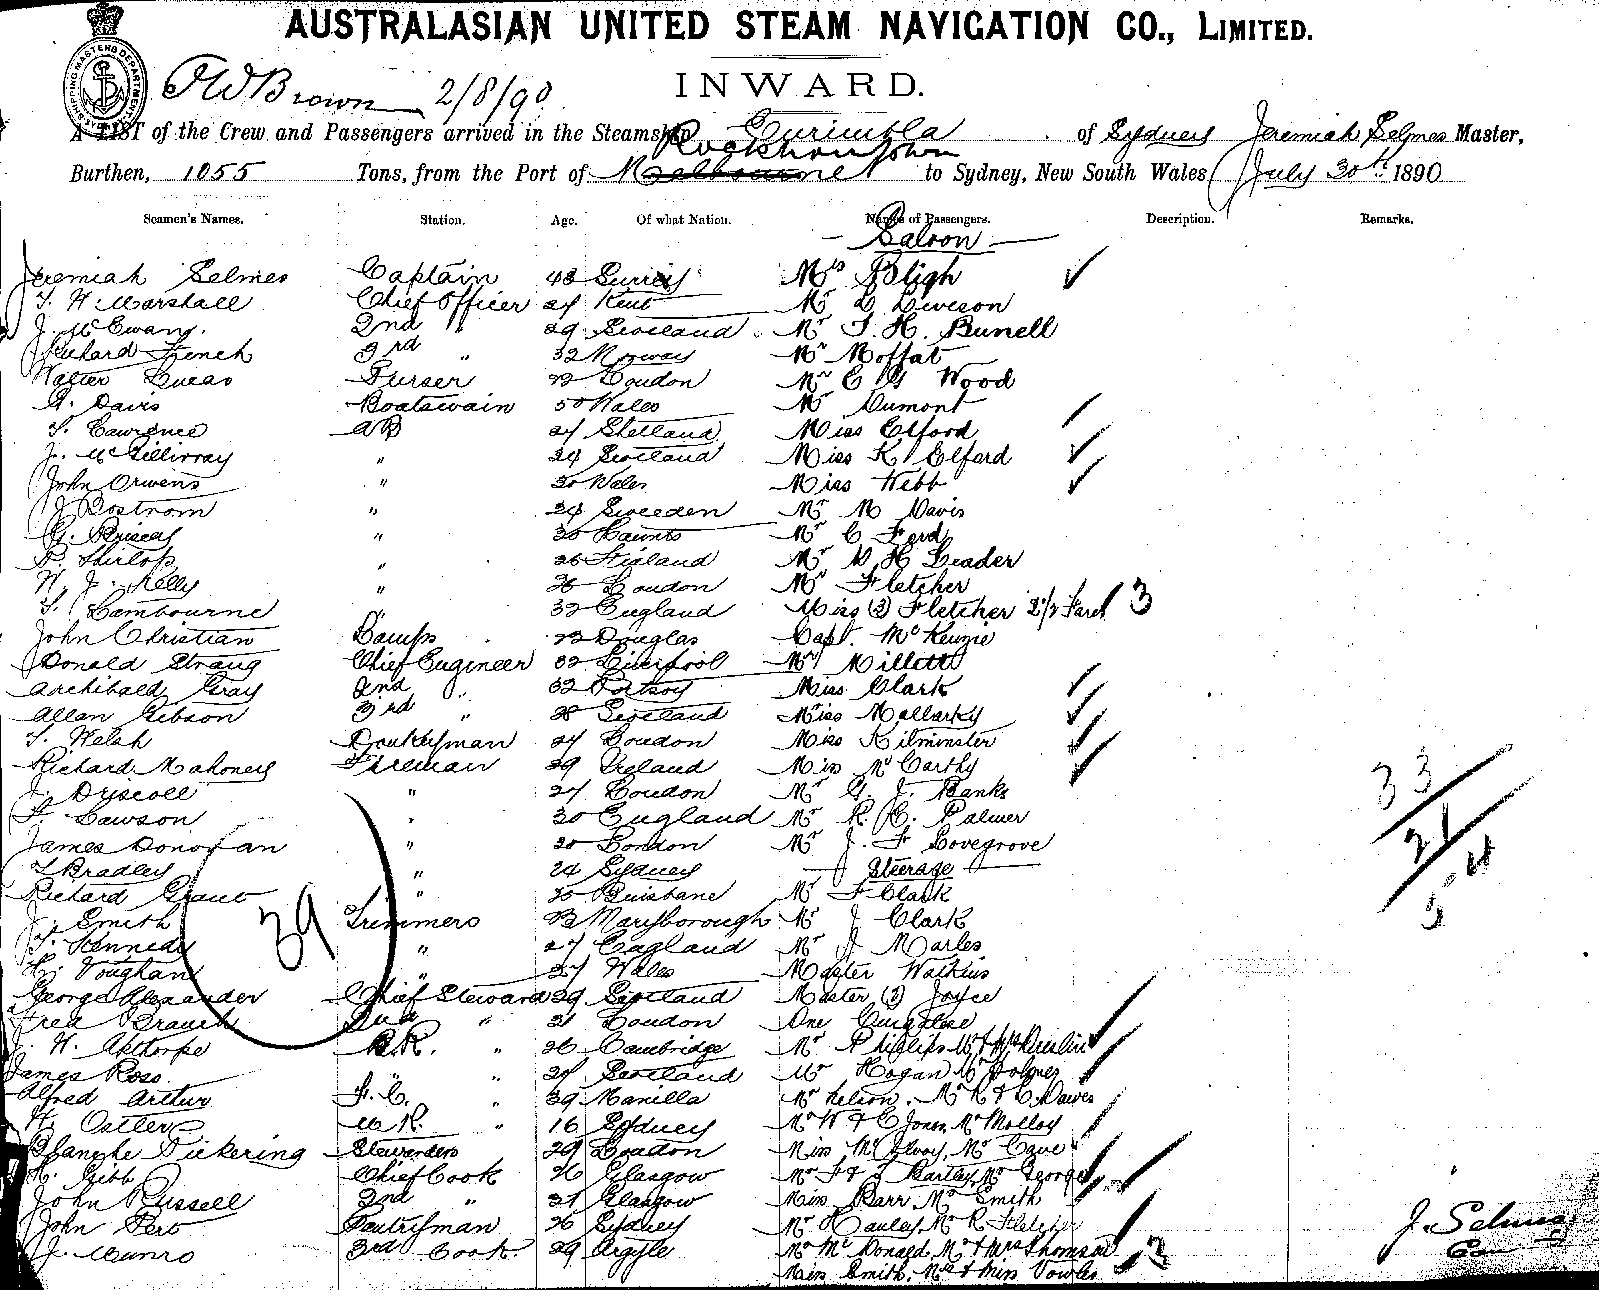 AUSTRALASIAN UNITED STEAM NAVIGATION CO., LIMITED.
SHIPPING MASTERS DEPARTMENT
INWARD.
2/8/90
A LIST of the Crew and Passengers arrived in the Steamship Eurimbla of Sydney Jeremiah Selmes Master,
Rockhampton
Burthen, 1055 Tons, from the Port of Melbourne to Sydney, New South Wales July 30th 1890
Seamen's Names. Station. Age. Of what Nation. Names of Passengers. Description. Remarks.
Saloon
Jeremiah Selmes Captain 48 Surrey Mrs Bligh
T. H. Marshall Chief Officer 27 Kent Mr D Liveson
J. McEwang. 2nd " 29 Scotland Mr F. H. Bunell
Richard French 3rd " 32 Norway Mr Moffat
Walter Lucas Purser London Mr C Wood
Davis Boatswain 50 Wales Mr Dumont
T. Lawrence AB 27 Shetland Miss Elford
J. McGillivray " 24 Scotland Miss K Elford
John Orwens " 30 Wales Miss Webb
J Bostrom " 24 Sweeden Mr M Davis
G. " 30 Mr C Ford
P. " 26 Mr H Leader
W. J. Kelly " London Mr Fletcher
T. Cambourne " 32 England Miss (2) Fletcher 2/2 Fares 3
John Christian Lamps Douglas Capt. McKenzie
Donald Strang Chief Engineer 32 Liverpool Mr Millett
Archibald Gray 2nd " 32 Portsoy Miss Clark
Allan Gibson 3rd " 28 Scotland Miss Mallarky
T. Welsh Donkeyman 27 London Miss Kilminster
Richard Mahoney Fireman 29 Ireland Miss McCarthy
J. Dryscoll " 27 London Mr G. J. Banks
Lawson " 30 England Mr R. C. Palmer
James Donovan " 20 London Mr J. F Lovegrove
T Bradley " 24 Sydney Steerage
Richard Grant " 30 Brisbane Mr F Clark
J. Smith Trimmers 23 Maryborough Mr J Clark
T. Kennedy " 27 England Mr J Marles
Voughan " 27 Wales Master Watkins
George Alexander Chief Steward 29 Scotland Master (2) Joyce
Fred Branch 2nd " 21 London One
J. H. Apthorpe B.R. " 26 Cambridge Mr Phillips Mr & Mrs
James Ross " " 27 Scotland Mr Hogan Mr Holmes
Alfred Arthur F. C. " 29 Manilla Mr Nelson. Mr R & C Dawes
H. Ostler M R. " 16 Sydney Mr W & C Jones, Mr Molloy
Blanche Pickering Stewardess 29 London Miss McElvoy, Mr Cave
Gibb Chief Cook 26 Glasgow Mr F & J Bartley, Mr George
John Russell 2nd " 21 Glasgow Miss Barr Mr Smith
John Pert Pantryman 26 Sydney Mr Hauley, Mr R Fletcher
J. Munro 3rd Cook. 29 Argyle Mr McDonald, Mr & Mrs Thomson
Miss Smith, Mrs & Miss Vowles
39
33
21
54
J. Selmes